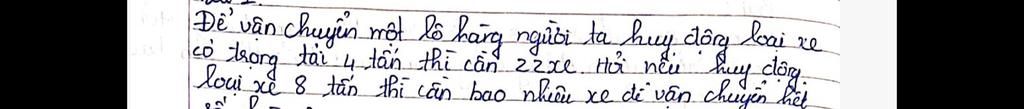 Để vận chuyển một lô hàng người ta huy động loại xe
có trọng tải 4 tấn thì cần 22xe. Hỏi nếu huy động
loại xe 8 tấn thì cần bao nhiêu xe để vận chuyển hết